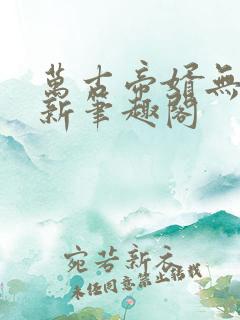 萬古帝婿無
新筆趣閣
宛若新衣
未经同意禁止转载